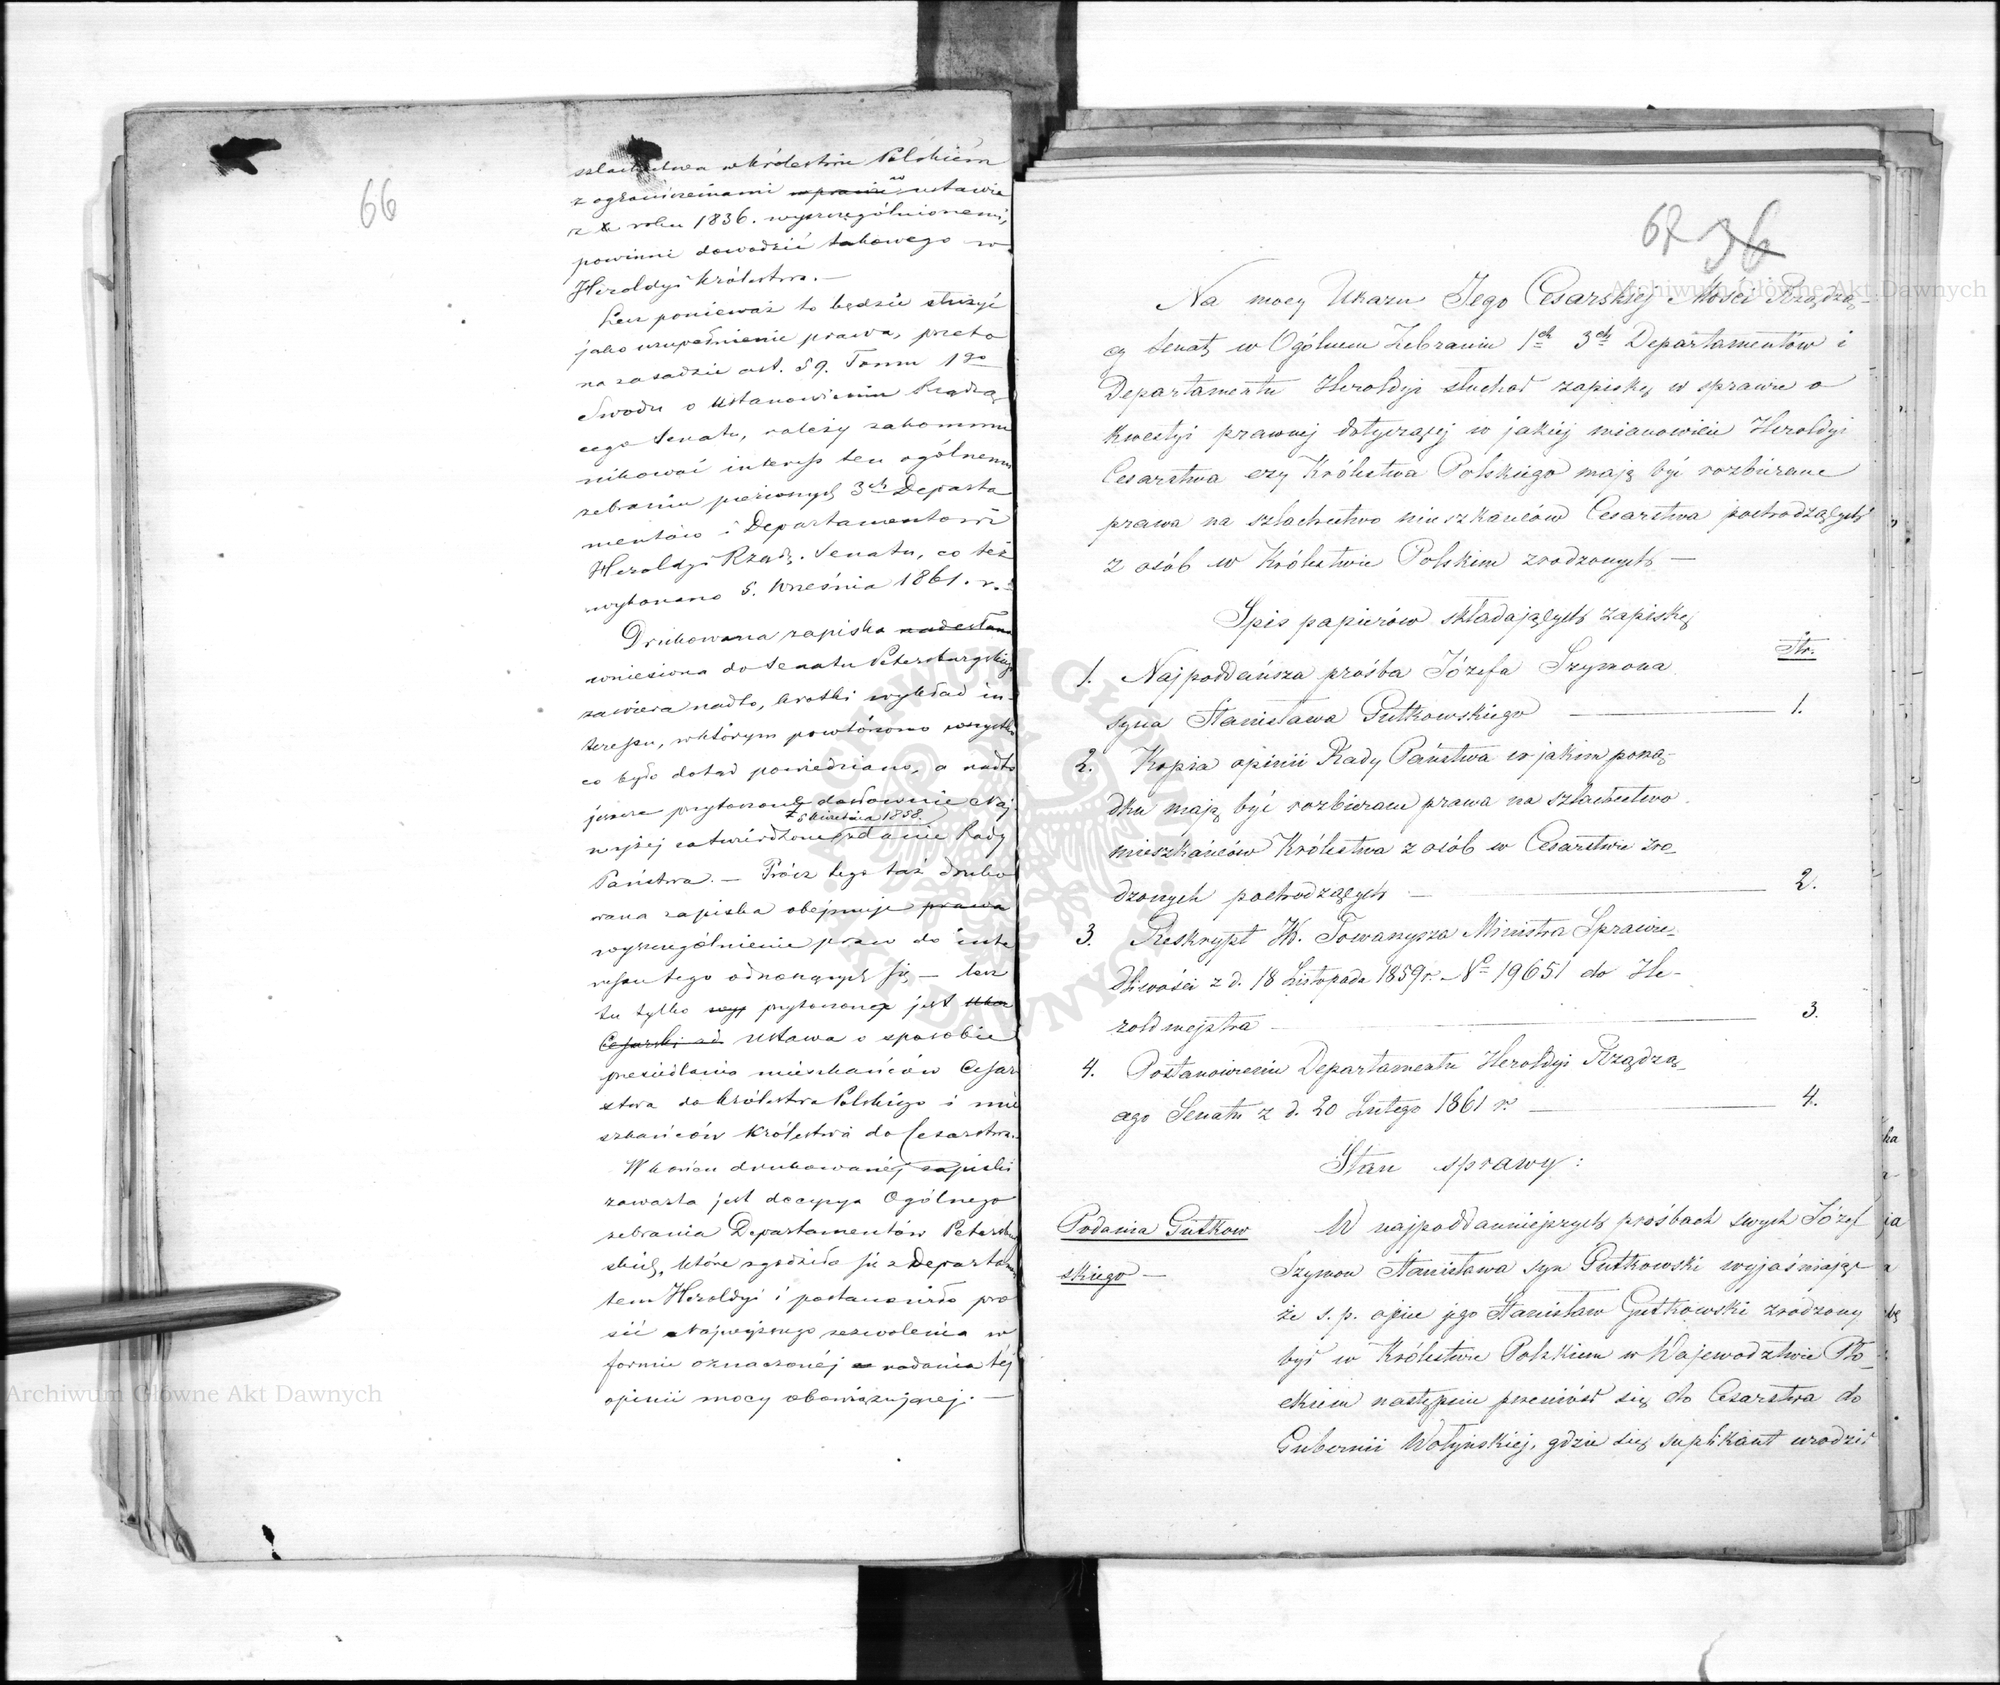 66
szlachectwa w Królestwie Polskiém
z ograniczeniami w prawie w ustawie
z roku 1836. wyszczególnionemi,
powinni dowodzić takowego w
Heroldyi Królestwa. —
Lecz ponieważ to będzie służyć
jako uzupełnienie prawa, przeto
na zasadzie art. 59. Tomu 1go
Swodu o Ustanowieniu Rządzą
cego Senatu, należy zakommu
nikować interess ten ogólnemu
zebraniu pierwszych 3ch Departa
mentów i Departamentowi
Heroldyi Rządz. Senatu, co też
wykonano 5. Września 1861. r. —
Drukowana zapiska nadesłana
wniesiona do Senatu Petersburgskiego
zawiera nadto, krótki wykład in-
teressu, w którym powtórzono wszystko
co było dotąd powiedziano, a nadto
jeszcze przytoczone dosłownie Naj
z 8 Kwietnia 1858.
wyżej zatwierdzone zdanie Rady
Państwa. — Prócz tego taż druko
wana zapiska obejmuje prawa
wyszczególnienie praw do inte
ressu tego odnoszących się, — lecz
tu tylko przytoczona jest
Cesarski ustawa o sposobie
przesiedlania mieszkańców Cesar
stwa do Królestwa Polskiego i mie
szkańców Królestwa do Cesarstwa.
W końcu drukowanéj zapiski
zawarta jest decyzya Ogólnego
zebrania Departamentów Petersburg
skich, które zgodziło się z Departamen
tem Heroldyi i postanowiło pro
sić Najwyższego zezwolenia w
formie oznaczonéj nadania téj
opinii mocy obowiązującej. —
67 36
Na mocy Ukazu Jego Cesarskiej Mości Rządzą-
cy Senat w Ogólnem Zebraniu 1ch 3ch Departamentów i
Departamentu Heroldyi słuchał zapiskę w sprawie o
Kwestyi prawnej dotyczącej w jakiej mianowicie Heroldyi
Cesarstwa czy Królestwa Polskiego mają być rozbierane
prawa na szlachectwo mieszkańców Cesarstwa pochodzących
z osób w Królestwie Polskim zrodzonych —
Spis papierów składających zapiskę
Str.
1. Najpoddańsza prośba Józefa Szymona
syna Stanisława Gutkowskiego — 1.
2. Kopia opinii Rady Państwa w jakim porzą-
dku mają być rozbierane prawa na szlachectwo
mieszkańców Królestwa z osób w Cesarstwie zro-
dzonych pochodzących — 2.
3. Reskrypt W. Towarzysza Ministra Sprawie-
dliwości z d. 18 Listopada 1859 r. No 19651 do He-
roldmejstra — 3.
4. Postanowienie Departamentu Heroldyi Rządzą-
cego Senatu z d. 20 Lutego 1861 r. — 4.
Stan sprawy:
Podania Gutkow
skiego —
W najpoddanniejszych prośbach swych Józef
Szymon Stanisława syn Gutkowski wyjaśniając
że ś. p. ojciec jego Stanisław Gutkowski zrodzony
był w Królestwie Polskiem w Wojewodztwie Pło-
ckiem następnie przeniósł się do Cesarstwa do
Gubernii Wołyńskiej, gdzie się suplikant urodził
Archiwum Główne Akt Dawnych
Archiwum Główne Akt Dawnych